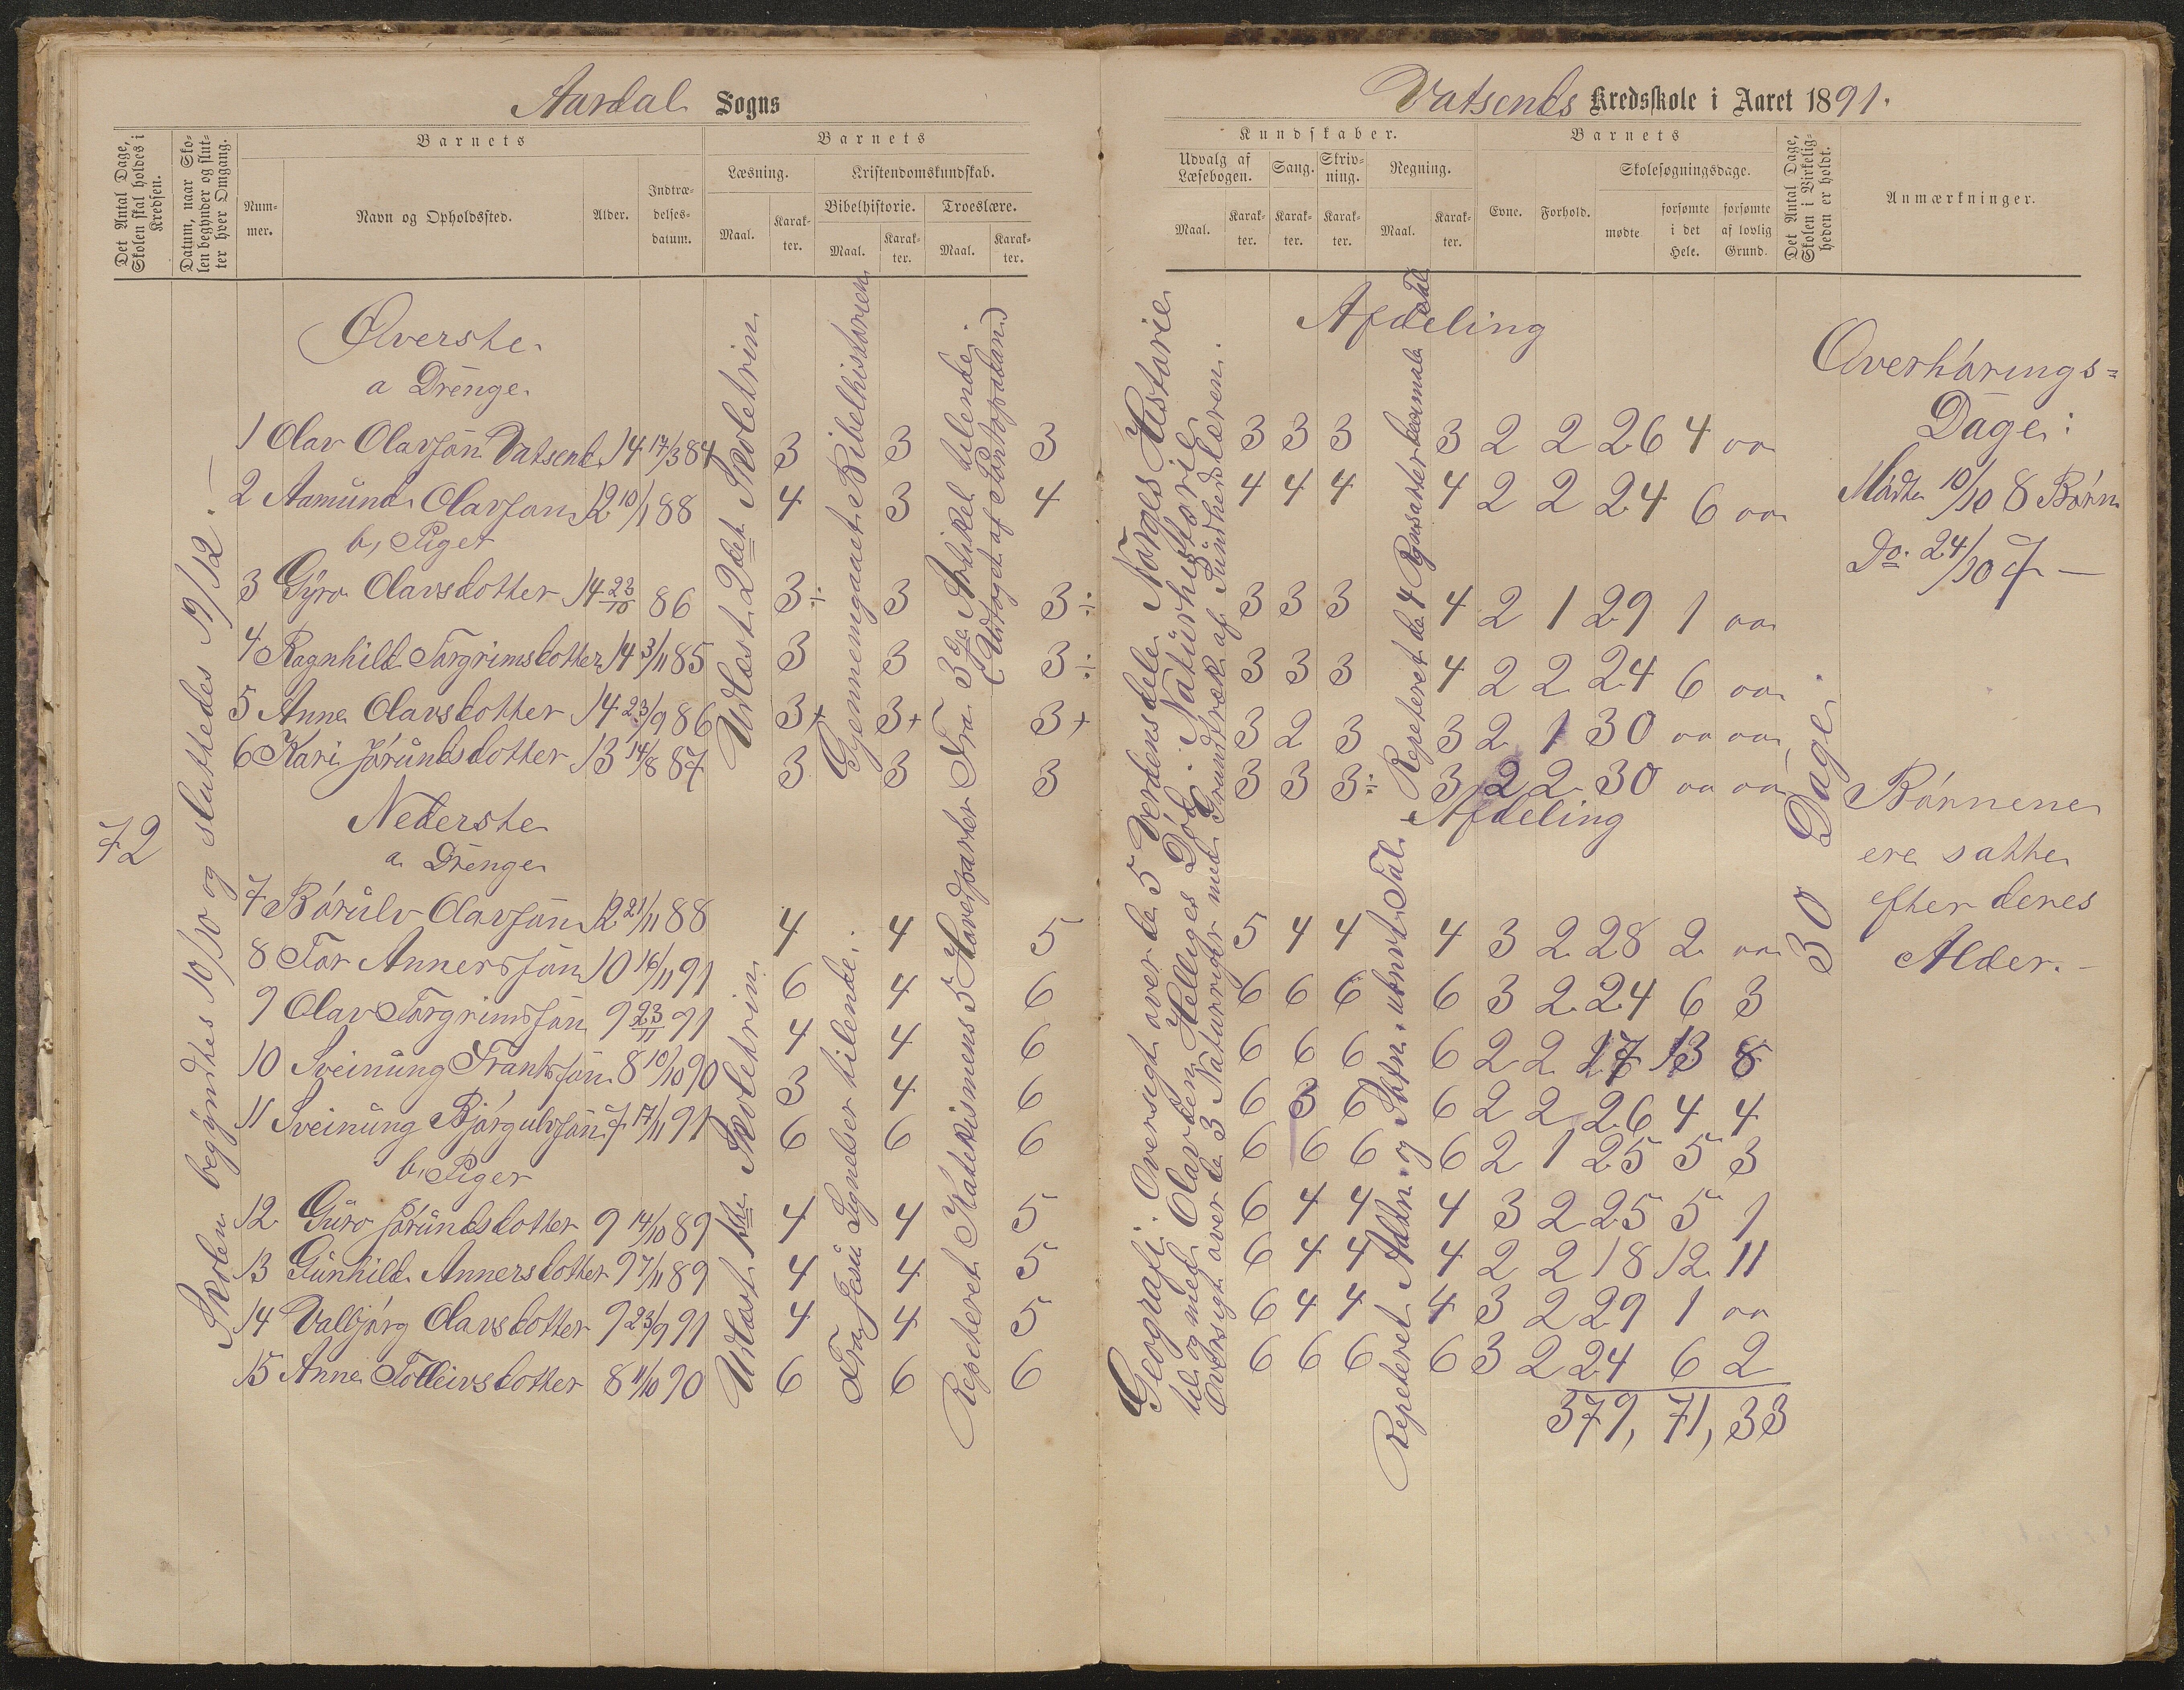 Aardal Sogns
Det Antal Dage, Skolen skal holdes i Kredsen.
Datum, naar Skolen begynder og slutter hver Omgang.
Barnets
Nummer.
Navn og Opholdssted.
Alder.
Indtrædelsesdatum.
Barnets
Læsning.
Maal.
Karakter.
Kristendomskundskab.
Bibelhistorie.
Maal.
Karakter.
Troeslære.
Maal.
Karakter.
72
Skolen begyndtes 10/10 og sluttedes 19/12.
Øverste
a Drenge
1 Olav Olavsøn Vatsend 14 17/3 84 3 3 3
2 Aamund Olavsøn 12 10/1 88 4 3 4
b, Piger
3 Gyro Olavsdotter 14 23/10 86 3÷ 3 3÷
4 Ragnhild Torgrimsdotter 14 3/11 85 3 3 3÷
5 Anne Olavsdotter 14 23/9 86 3+ 3+ 3+
6 Kari Jørundsdotter 13 14/8 87 3 3 3
Udlæst 2det Skoletrin
Gjennemgaaet Bibelhistorien
Fra 3de Artikel tilende.
(Udtoget af Pontoppidan)
Nederste
a Drenge
7 Børulv Olavsøn 12 21/11 88 4 4 5
8 Tor Annersøn 10 16/11 91 6 4 6
9 Olav Torgrimsøn 9 23/11 91 4 4 6
10 Sveinung Frantsøn 8 10/10 90 3 4 6
11 Sveinung Bjørgulvsøn 7 17/11 91 6 6 6
b, Piger
12 Guro Jørundsdotter 9 14/10 89 4 4 5
13 Gunhild Annersdotter 9 7/11 89 4 4 5
14 Valbjørg Olavsdotter 9 23/9 91 4 4 5
15 Anne Tolleivsdotter 8 11/10 90 6 6 6
Udlæst 1ste Skoletrin
Fra Jesu Lignelser tilende.
Repeteret Katekismens 5 Hovedparter
Vatsends Kredsskole i Aaret 1891.
Kundskaber.
Udvalg af Læsebogen.
Maal.
Karakter.
Sang.
Karakter.
Skrivning.
Karakter.
Regning.
Maal.
Karakter.
Barnets
Evne.
Forhold.
Skolesøgningsdage.
mødte
forsømte i det Hele.
forsømte af lovlig Grund.
Det Antal Dage, Skolen i Virkeligheden er holdt.
Anmærkninger.
Geografi: Oversigt over de 5 Verdensdele Norges Historie
til og med Olav den Helliges Død. Naturhistorie
Oversigt over de 3 Naturriger med Grundtræk af Sundhedslæren.
Afdeling
3 3 3 3 2 2 26 4 oo
4 4 4 4 2 2 24 6 oo
3 3 3 4 2 1 29 1 oo
3 3 3 4 2 2 24 6 oo
3 2 3 3 2 1 30 oo oo
3 3 3÷ 3 2 2 30 oo oo
Repeteret de 4 Regnearter
Afdeling
5 4 4 4 3 2 28 2 oo
6 6 6 6 3 2 24 6 3
6 6 6 6 2 2 17 13 8
6 3 6 6 2 2 26 4 4
6 6 6 6 2 1 25 5 3
6 4 4 4 3 2 25 5 1
6 4 4 4 2 2 18 12 11
6 4 4 4 3 2 29 1 oo
6 6 6 6 3 2 24 6 2
379, 71, 33
Repeteret Addn. og Subtn. i ubnvt Tal
30 Dage
Overhørings=
Dage:
Mødte 10/10 8 Børn
Do. 24/10 7 —
Børnene
ere satte
efter deres
Alder.